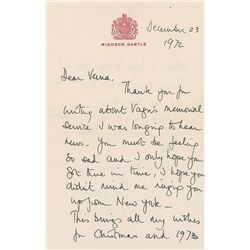 WINDSOR CASTLE
December 23
1972
Dear Verna.
Thank you for
writing about Vagn's memorial
service I was longing to hear
news. You must be feeling
so sad and I only hope you
got there in time, I hope you
didn't mind me ringing you
up from New York -
This brings all my wishes
for Christmas and 1973